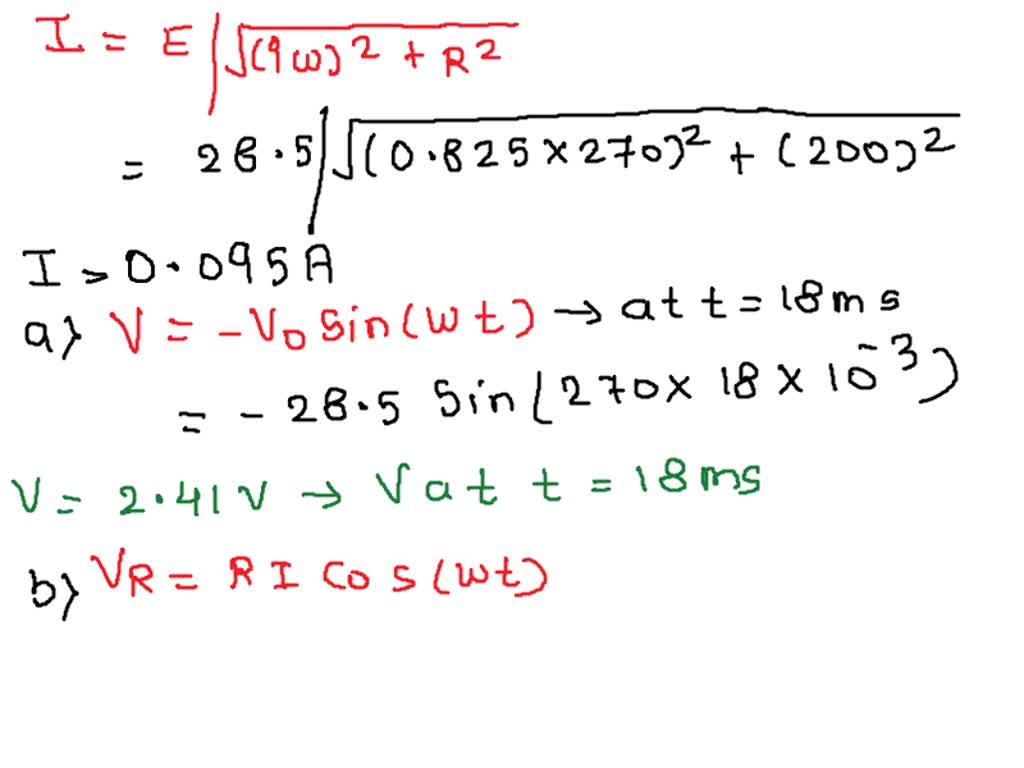 I = E / √(9ω)² + R²
= 28.5 / √(0.825 × 270)² + (200)²
I > 0.095A
a) V = -V₀ Sin(ωt) → at t = 18ms
= - 28.5 Sin(270 × 18 × 10⁻³)
V = 2.41V → V at t = 18ms
b) VR = R I Cos(ωt)